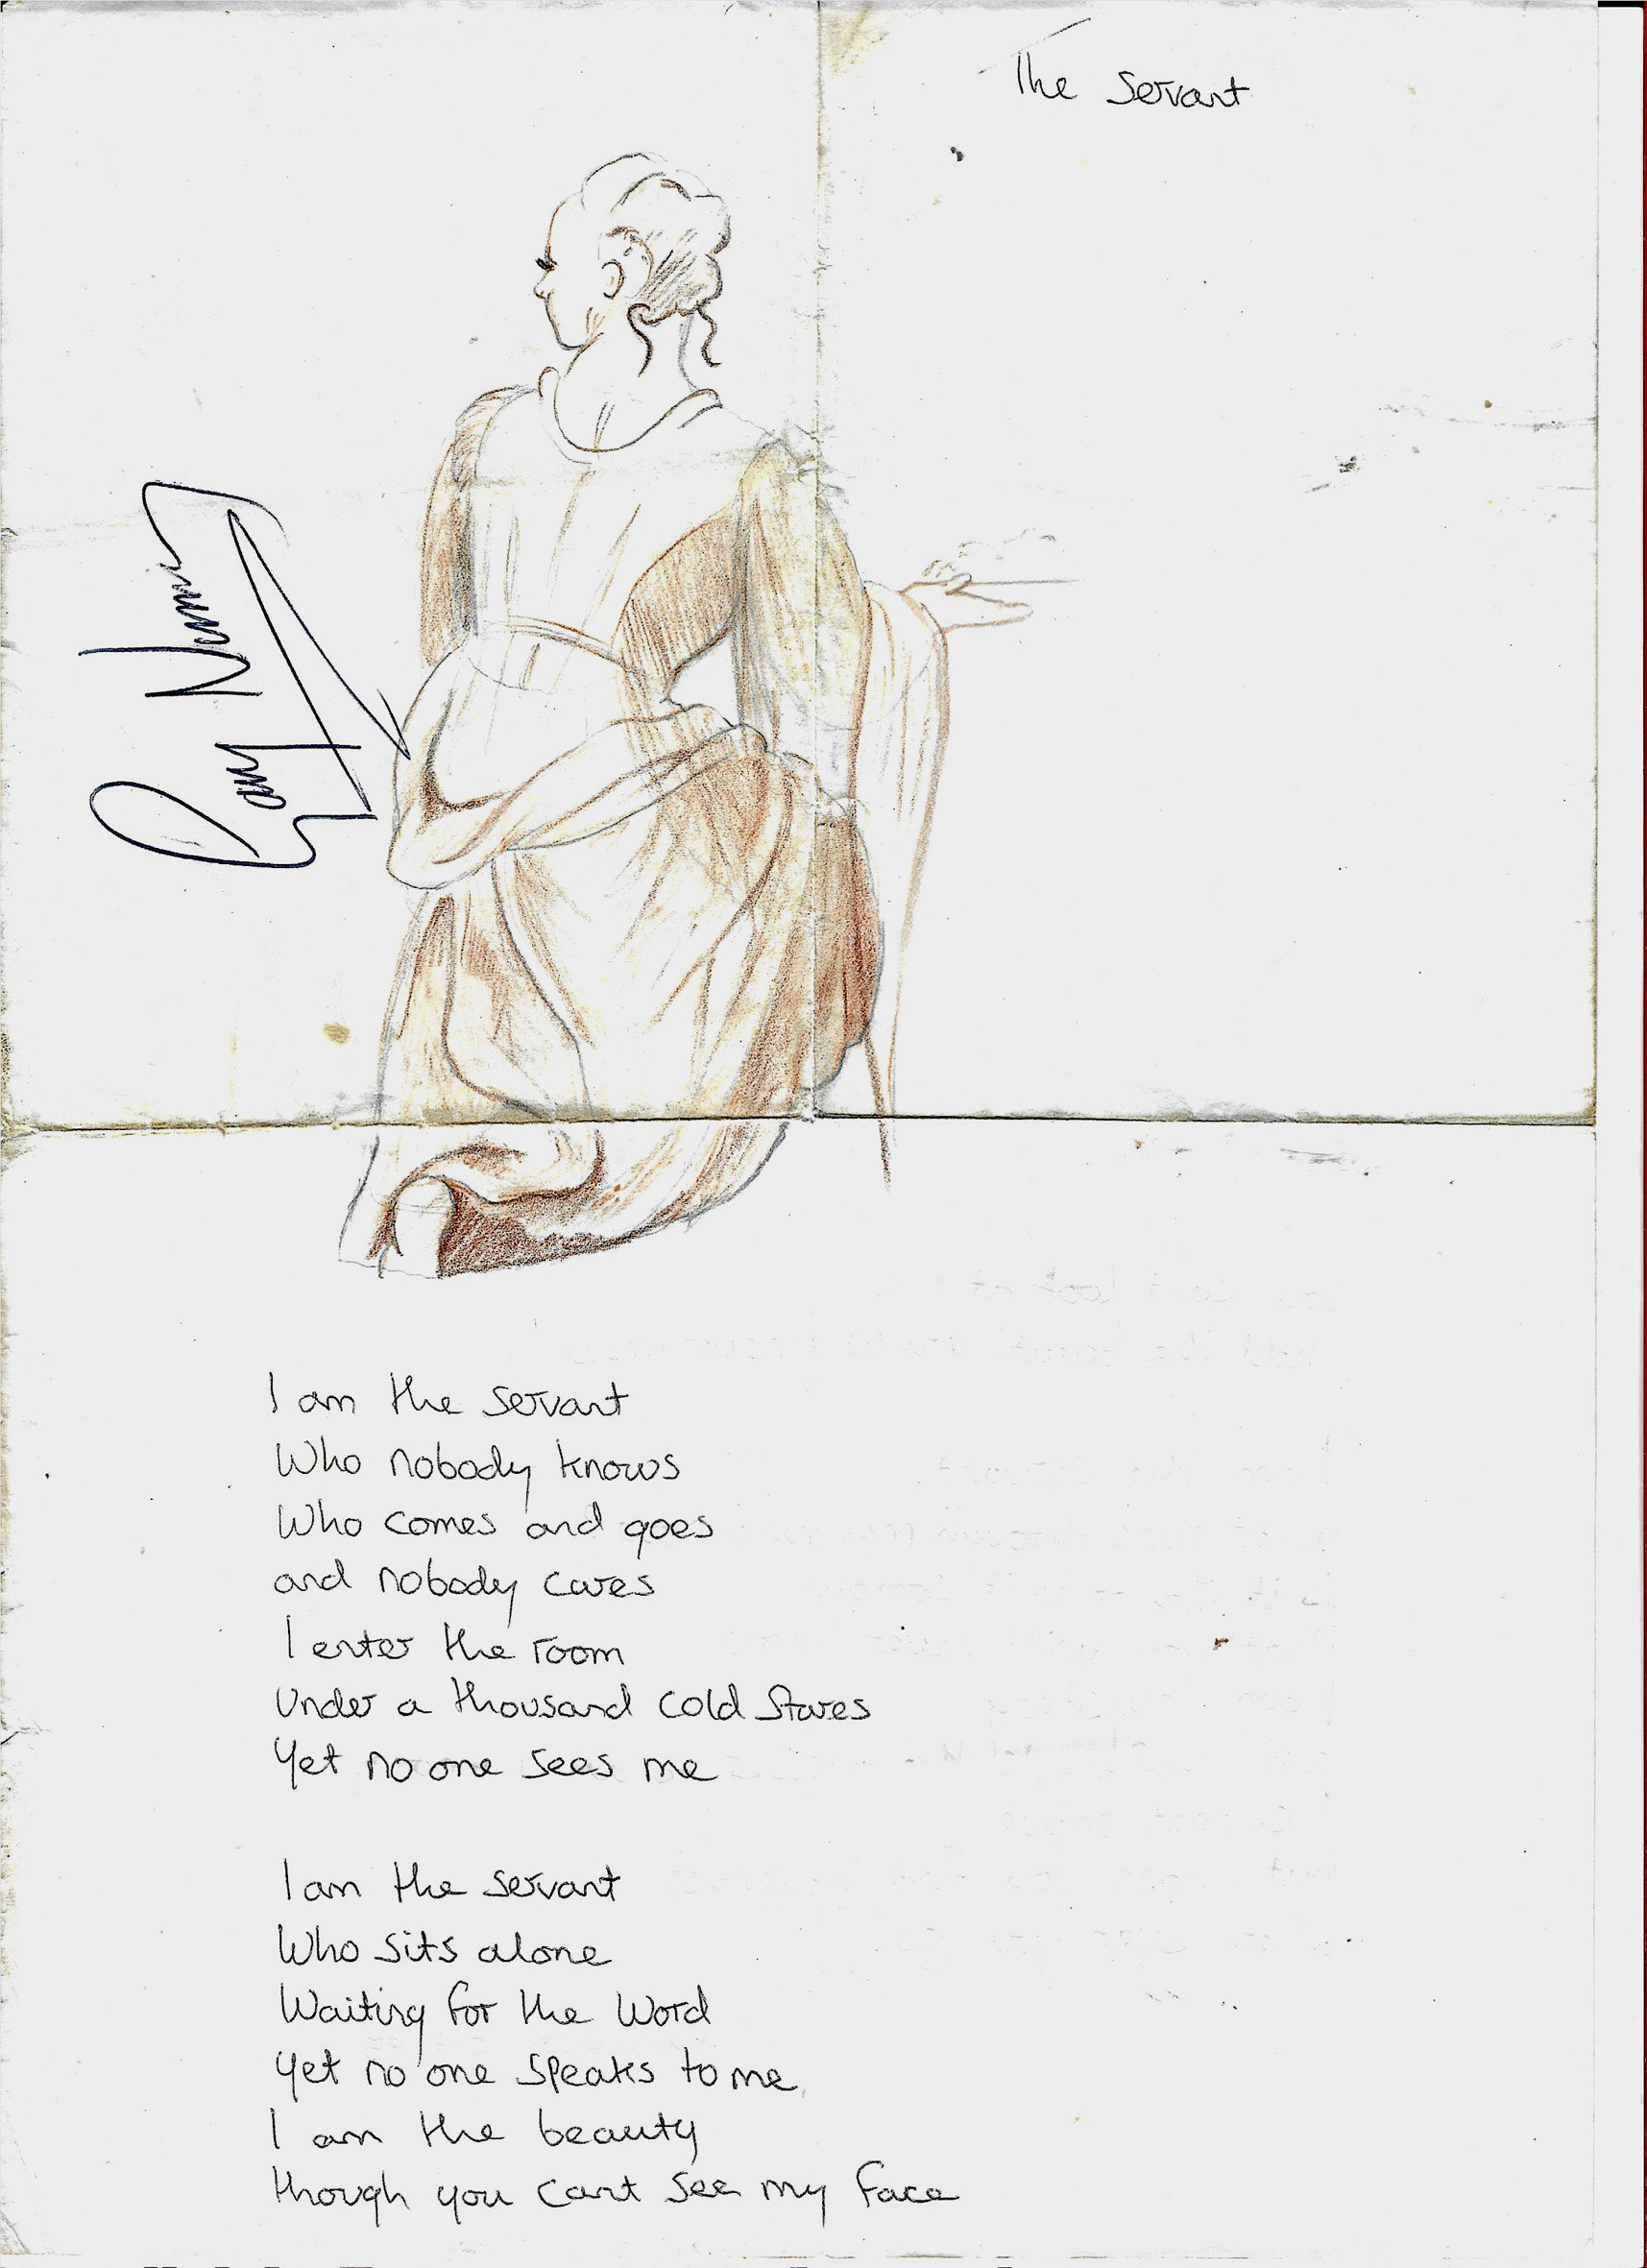 The servant
I am the servant
Who nobody knows
Who comes and goes
and nobody cares
I enter the room
Under a thousand cold stares
Yet no one sees me
I am the servant
Who sits alone
Waiting for the Word
Yet no one speaks to me
I am the beauty
though you cant see my face